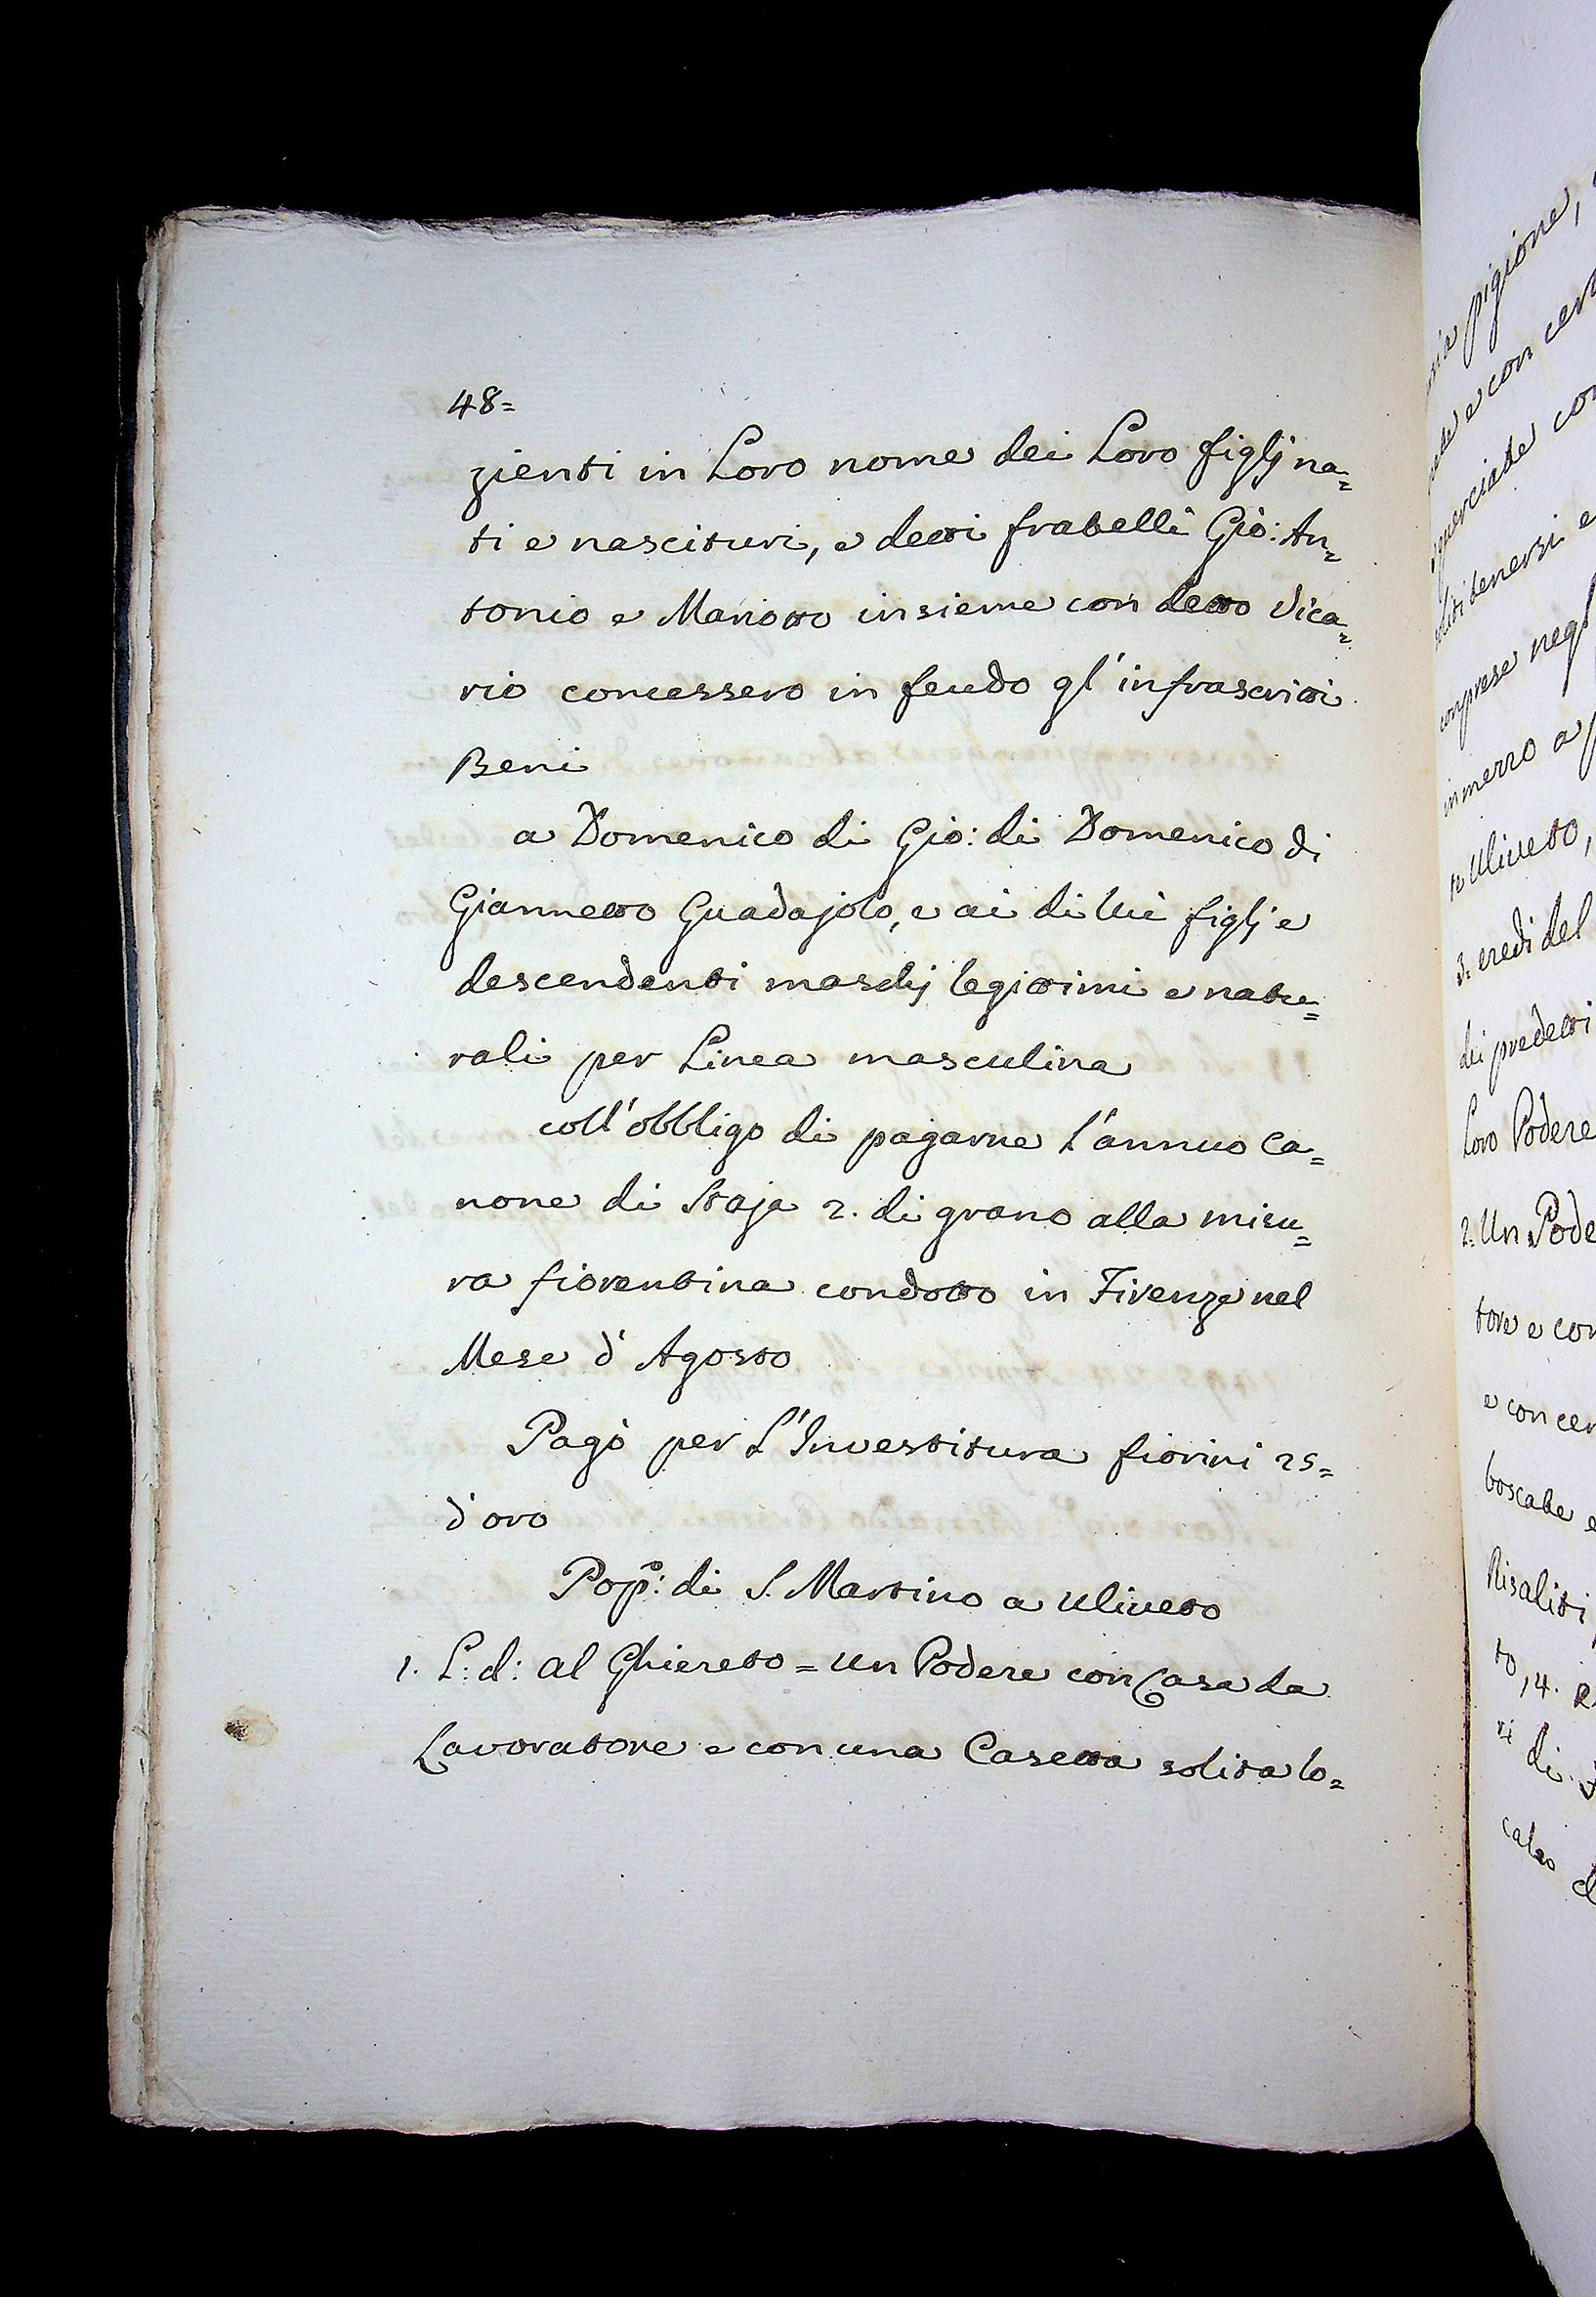 48=
zienti in Loro nome dei Loro figlj na=
ti e nascituri, e detti fratelli Gio: An=
tonio e Mariotto insieme con detto Vica=
rio concessero in feudo gl'infrascritti
Beni
a Domenico di Gio: di Domenico di
Giannetto Guadajolo, e ai di lui figlj e
descendenti maschj legittimi e natu=
rali per Linea masculina
coll'obbligo di pagarne l'annuo Ca=
none di Staja 2. di grano alla misu=
ra fiorentina condotto in Firenze nel
Mese d'Agosto
Pagò per L'Investitura fiorini 25=
d'oro
Pop̊: di S. Martino a Uliveto
1. L: d: al Ghiereto = Un Podere con Casa da
Lavoratore e con una Casetta solita lo=
pigione,
e con
comprese
in mezzo a
Uliveto,
3. eredi del
dei predetti
Loro Podere
2. Un Pode
tore e con
e con cer
boscate e
Risaliti
to, 14.
di